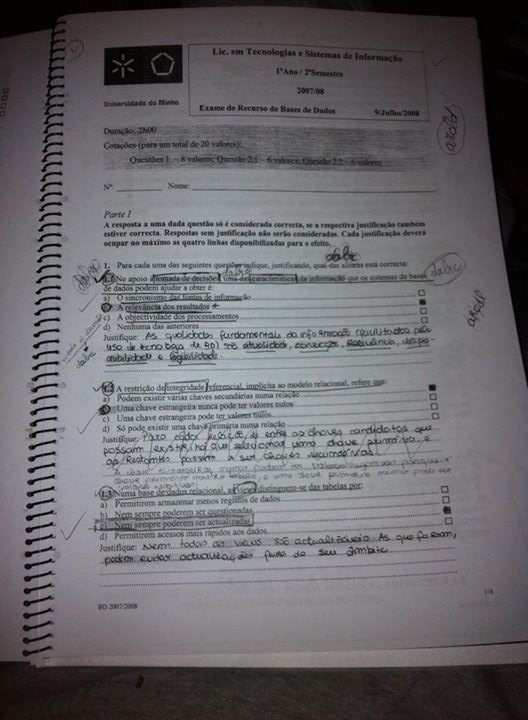 Lic. em Tecnologias e Sistemas de Informação
1ºAno / 2ºSemestre
2007/08
Universidade do Minho
Exame de Recurso de Bases de Dados 9/Julho/2008
Duração: 2h00
Cotações (para um total de 20 valores):
Questões 1 – 8 valores; Questão 2.1 – 6 valores; Questão 2.2 – 6 valores
Nº: Nome:
Parte I
A resposta a uma dada questão só é considerada correcta, se a respectiva justificação também
estiver correcta. Respostas sem justificação não serão consideradas. Cada justificação deverá
ocupar no máximo as quatro linhas disponibilizadas para o efeito.
dabc
1. Para cada uma das seguintes questões indique, justificando, qual das alíneas está correcta:
1.1 No apoio à tomada de decisões uma das características da informação que os sistemas de bases
de dados podem ajudar a obter é:
a) O sincronismo das fontes de informação
b) A relevância dos resultados
c) A objectividade dos processamentos
d) Nenhuma das anteriores
Justifique: As qualidades fundamentais da informação resultados pelo
uso de tecnologia de BD, são atualidade, correcção, relevância, dispo-
nibilidade e legibilidade
1.2 A restrição de integridade referencial, implícita ao modelo relacional, refere que:
a) Podem existir várias chaves secundárias numa relação
b) Uma chave estrangeira nunca pode ter valores nulos
c) Uma chave estrangeira pode ter valores nulos
d) Só pode existir uma chave primária numa relação
Justifique: Para cada relação, de entre as chaves candidatas que
possam existir, há que selecionar uma chave primária e
as restantes passam a ser chaves secundárias
1.3 Numa base de dados relacional, as views distinguem-se das tabelas por:
a) Permitirem armazenar menos registos de dados
b) Nem sempre poderem ser questionadas
c) Nem sempre poderem ser actualizadas
d) Permitirem acessos mais rápidos aos dados
Justifique: Nem todas as views são actualizáveis. As que foram,
podem evitar actualizações fora do seu âmbito
BD 2007/2008 1/4